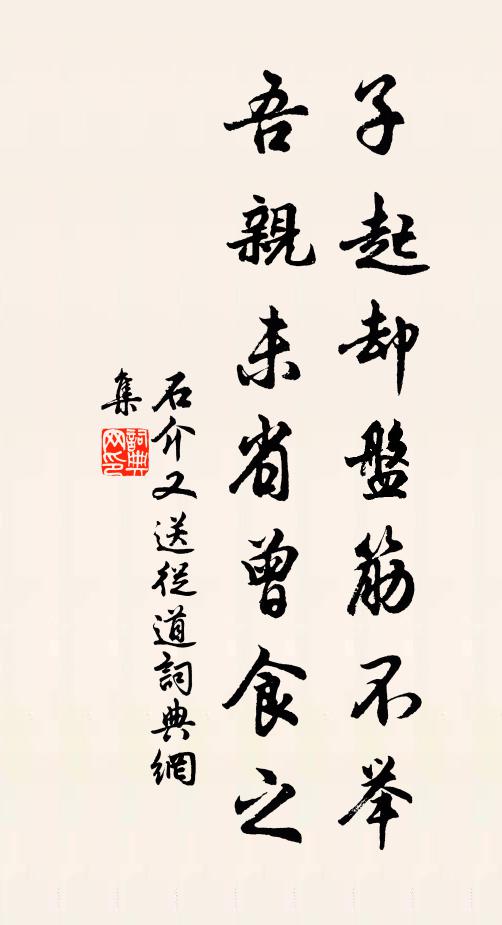 子起却盤筋不举
吾親未省曾食之
石介又送從道詞典網
集
詞典网印